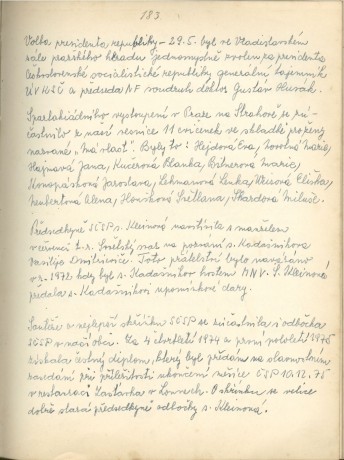 183.
Volba presidenta republiky - 29.5. byl ve Vladislavském
sále pražského hradu jednomyslně zvolen za presidenta
Československé socialistické republiky generální tajemník
ÚV KSČ a předseda NF soudruh doktor Gustav Husák.
Spartakiádního vystoupení v Praze na Strahově se zú-
častnilo z naší vesnice 11 cvičenek ve skladbě pro ženy
nazvané „Má vlast". Byly to: Hejdová Eva, Marie,
Hajnová Jana, Kučerová Blanka, Bitnerová Marie,
Konopásková Jaroslava, Lehmanová Lenka, Eliška,
Neubertová Alena, Horáková Světlana, Škardová Miluše.
Předsedkyně SČSP s. Kleinová navštívila s manželem
v červenci t.r. Sovětský svaz na pozvání s. Kadašnikova
Vasilije Dmitrieviče. Toto přátelství bylo navázáno
v r. 1972 kdy byl s. Kadašnikov hostem MNV. S. Kleinová
předala s. Kadašnikovi upomínkové dary.
Soutěže o nejlepší skříňku SČSP se zúčastnila i odbočka
SČSP v naší obci. Za 4 čtvrtletí 1974 a první pololetí 1975
získala čestný diplom, který byl předán na slavnostním
zasedání při příležitosti ukončení měsíce ČSP 10.12.75
v restauraci Zastávka v Lovosicích. O skříňku se velice
dobře stará předsedkyně odbočky s. Kleinová.